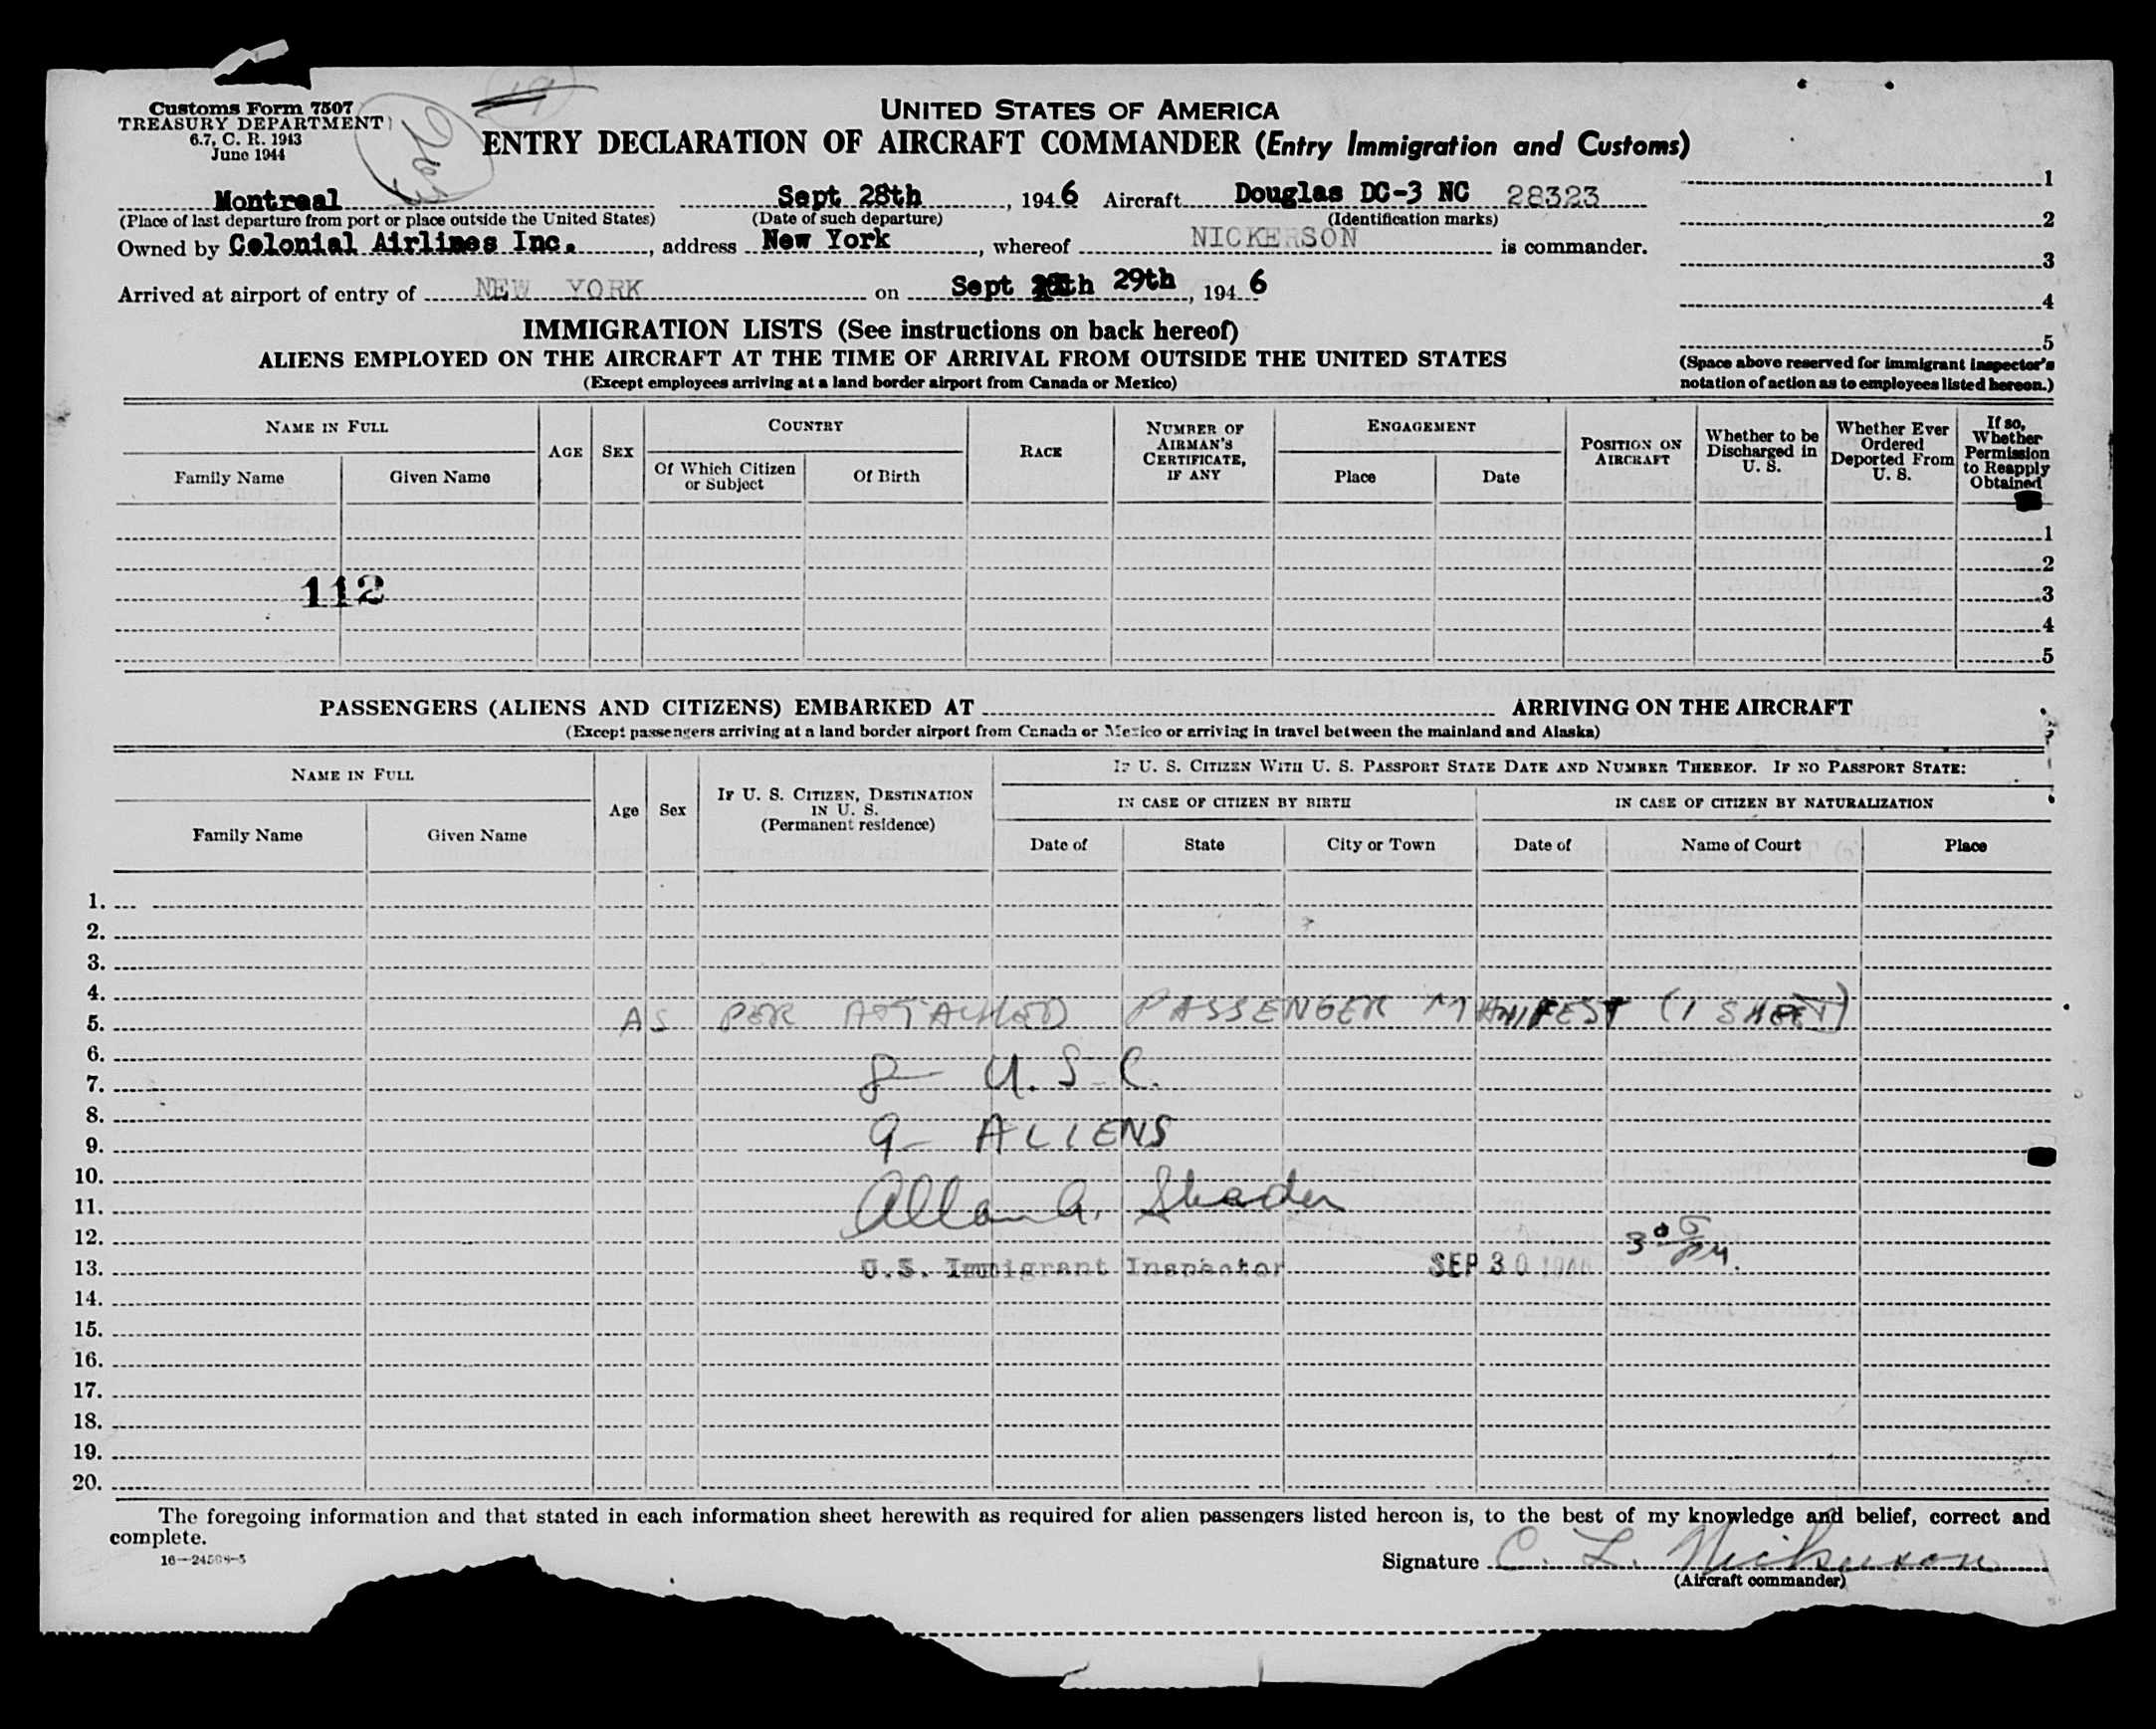 19
Customs Form 7507
TREASURY DEPARTMENT
6.7, C. R. 1943
June 1944
UNITED STATES OF AMERICA
ENTRY DECLARATION OF AIRCRAFT COMMANDER (Entry Immigration and Customs)
Montreal Sept 28th, 1946 Aircraft Douglas DC-3 NC 28323
(Place of last departure from port or place outside the United States) (Date of such departure) (Identification marks)
Owned by Colonial Airlines Inc., address New York, whereof NICKERSON is commander.
Arrived at airport of entry of NEW YORK on Sept 29th, 1946
1
2
3
4
5
(Space above reserved for immigrant inspector's
notation of action as to employees listed hereon.)
IMMIGRATION LISTS (See instructions on back hereof)
ALIENS EMPLOYED ON THE AIRCRAFT AT THE TIME OF ARRIVAL FROM OUTSIDE THE UNITED STATES
(Except employees arriving at a land border airport from Canada or Mexico)
NAME IN FULL
Family Name Given Name
AGE
SEX
COUNTRY
Of Which Citizen or Subject
Of Birth
RACE
NUMBER OF AIRMAN'S CERTIFICATE, IF ANY
ENGAGEMENT
Place Date
POSITION ON AIRCRAFT
Whether to be Discharged in U. S.
Whether Ever Ordered Deported From U. S.
If so, Whether Permission to Reapply Obtained
1
2
112 3
4
5
PASSENGERS (ALIENS AND CITIZENS) EMBARKED AT ARRIVING ON THE AIRCRAFT
(Except passengers arriving at a land border airport from Canada or Mexico or arriving in travel between the mainland and Alaska)
NAME IN FULL
Family Name Given Name
Age
Sex
IF U. S. CITIZEN, DESTINATION IN U. S. (Permanent residence)
IF U. S. CITIZEN WITH U. S. PASSPORT STATE DATE AND NUMBER THEREOF. IF NO PASSPORT STATE:
IN CASE OF CITIZEN BY BIRTH IN CASE OF CITIZEN BY NATURALIZATION
Date of State City or Town Date of Name of Court Place
1.
2.
3.
4.
5. AS PER ATTACHED PASSENGER MANIFEST (1 SHEET)
6.
7. 8 - U. S. C.
8.
9. 9 - ALIENS
10.
11. Allan A. Shader
12.
13. U.S. Immigrant Inspector SEP 30 1946
14.
15.
16.
17.
18.
19.
20.
The foregoing information and that stated in each information sheet herewith as required for alien passengers listed hereon is, to the best of my knowledge and belief, correct and
complete.
16—24508-3
Signature C. L. Nickerson
(Aircraft commander)